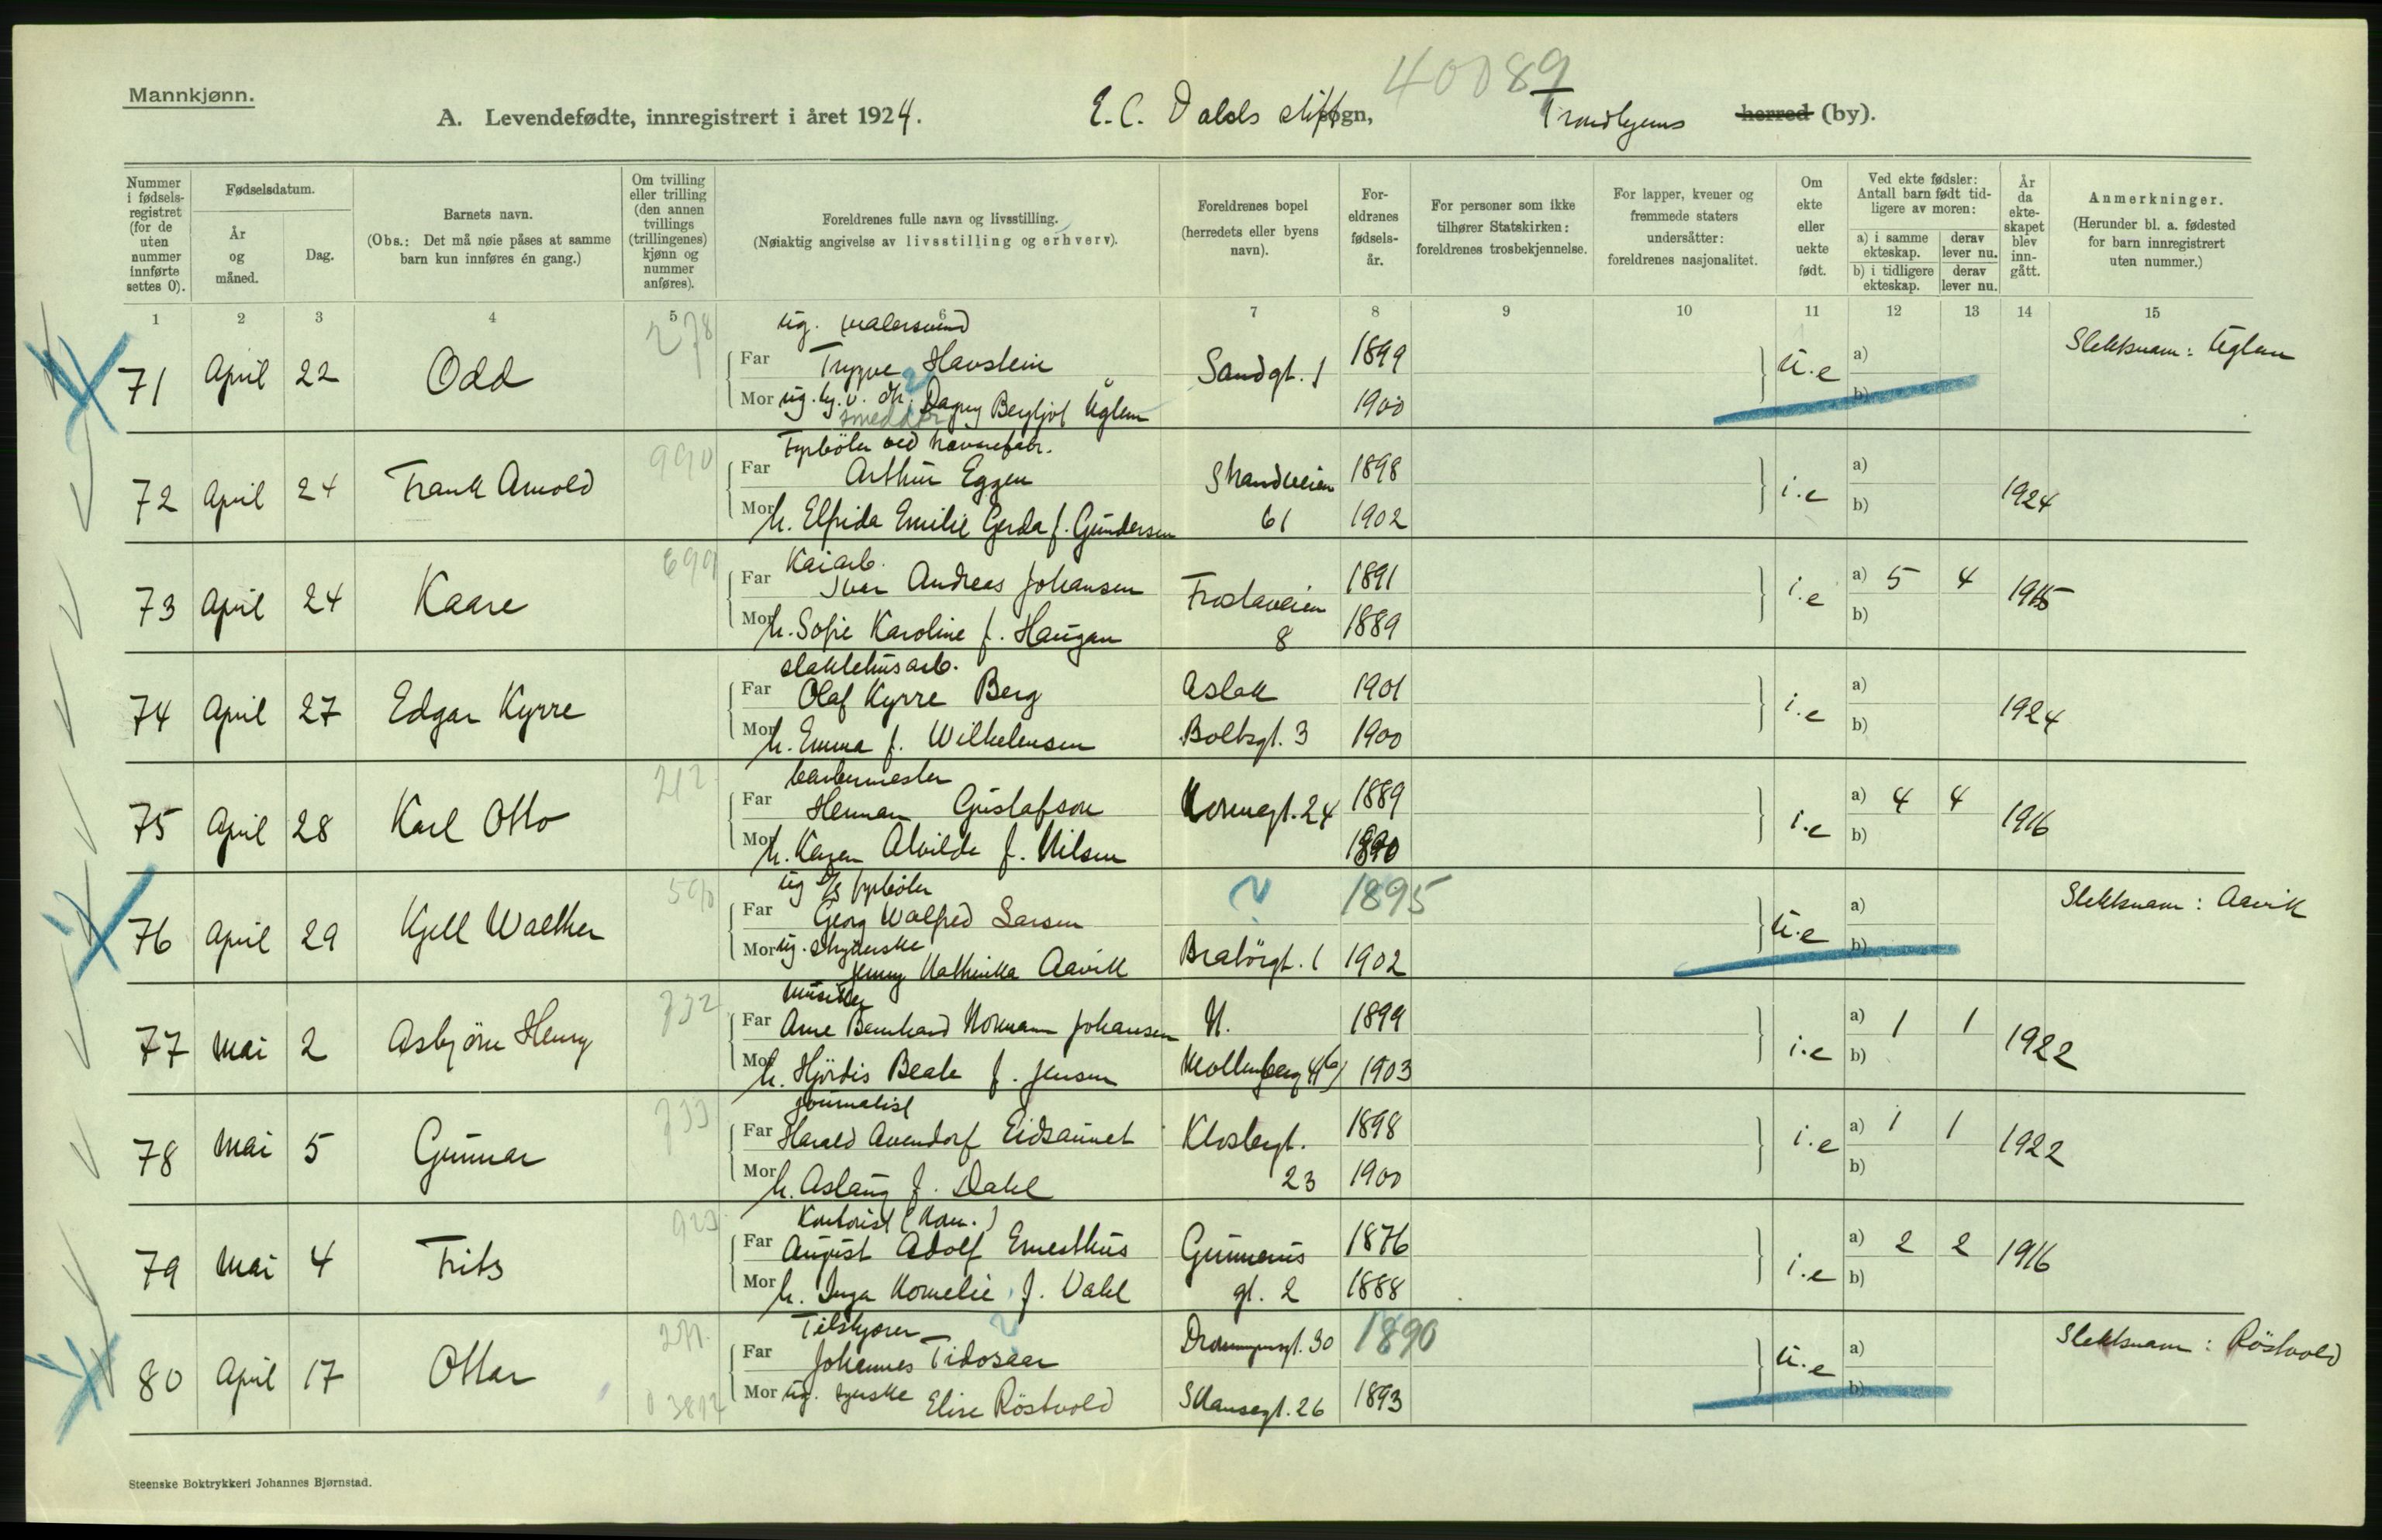 40089
Mannkjønn.
A. Levendefødte, innregistrert i året 1924. E. C. Dahls stift sogn, Trondhjems herred (by).
Nummer i fødsels-registret (for de uten nummer innførte settes 0).
Fødselsdatum.
År og måned.
Dag.
Barnets navn.
(Obs.: Det må nøie påses at samme barn kun innføres én gang.)
Om tvilling eller trilling (den annen tvillings (trillingenes) kjønn og nummer anføres).
Foreldrenes fulle navn og livsstilling.
(Nøiaktig angivelse av livsstilling og erhverv).
Foreldrenes bopel (herredets eller byens navn).
For-eldrenes fødsels-år.
For personer som ikke tilhører Statskirken: foreldrenes trosbekjennelse.
For lapper, kvener og fremmede staters undersåtter: foreldrenes nasjonalitet.
Om ekte eller uekte født.
Ved ekte fødsler: Antall barn født tid-ligere av moren:
a) i samme ekteskap.
derav lever nu.
b) i tidligere ekteskap.
derav lever nu.
År da ekte-skapet blev inn-gått.
Anmerkninger.
(Herunder bl. a. fødested for barn innregistrert uten nummer.)
1 2 3 4 5 6 7 8 9 10 11 12 13 14 15
278 ug. malersvend
71 April 22 Odd Far Trygve Havstein Sandgt. 1 1899 u.e a) Slektsnam: Uglem
Mor ug. Dagny Bergljot Uglem 1900 b)
990 Fyrbøter ved
72 April 24 Frank Arnold Far Arthur Eggen Strandveien 1898 i.e a) 1924
Mor h. Elfrida Emilie Gerda f. Gundersen 61 1902 b)
699 Kaiarb.
73 April 24 Kaare Far Ivar Andreas Johansen Frostaveien 1891 i.e a) 5 4 1915
Mor h. Sofie Karoline f. Haugan 8 1889 b)
slaktehusarb.
74 April 27 Edgar Kyrre Far Olaf Kyrre Berg Aslak 1901 i.e a) 1924
Mor h. Emma f. Wilhelmsen Boltsgt. 3 1900 b)
212 barbermester
75 April 28 Karl Otto Far Herman Gustafson gt. 24 1889 i.e a) 4 4 1916
Mor h. Karen Alvilde f. Nilsen 1890 b)
ug D/S fyrbøter
76 April 29 Kjell Walther Far Georg Walfred Larsen ? 1895 u.e a) Slektsnam: Aavik
Mor ug. Jenny Kathinka Aavik Bratørgt. 1 1902 b)
732 musiker
77 Mai 2 Asbjørn Henry Far Arne Bernhard Norman Johansen N. 1899 i.e a) 1 1 1922
Mor h. Hjördis Beate f. Jensen Mollenberg 1903 b)
733 journalist
78 Mai 5 Gunnar Far Harald Avendorf Eidsaunet Klostergt. 1898 i.e a) 1 1 1922
Mor h. Aslaug f. Dahl 23 1900 b)
923 Kontorist
79 Mai 4 Frits Far August Adolf Ernesthus Gunnerus 1876 i.e a) 2 2 1916
Mor h. Inga Kornelie f. Dahl gt. 2 1888 b)
271. Tilskjærer
80 April 17 Ottar Far Johannes Tidosaar gt. 30 1890 u.e a) Slektsnam: Röstvold
Mor ug. syerske Elise Röstvold Skansegt. 26 1893 b)
Steenske Boktrykkeri Johannes Bjørnstad.